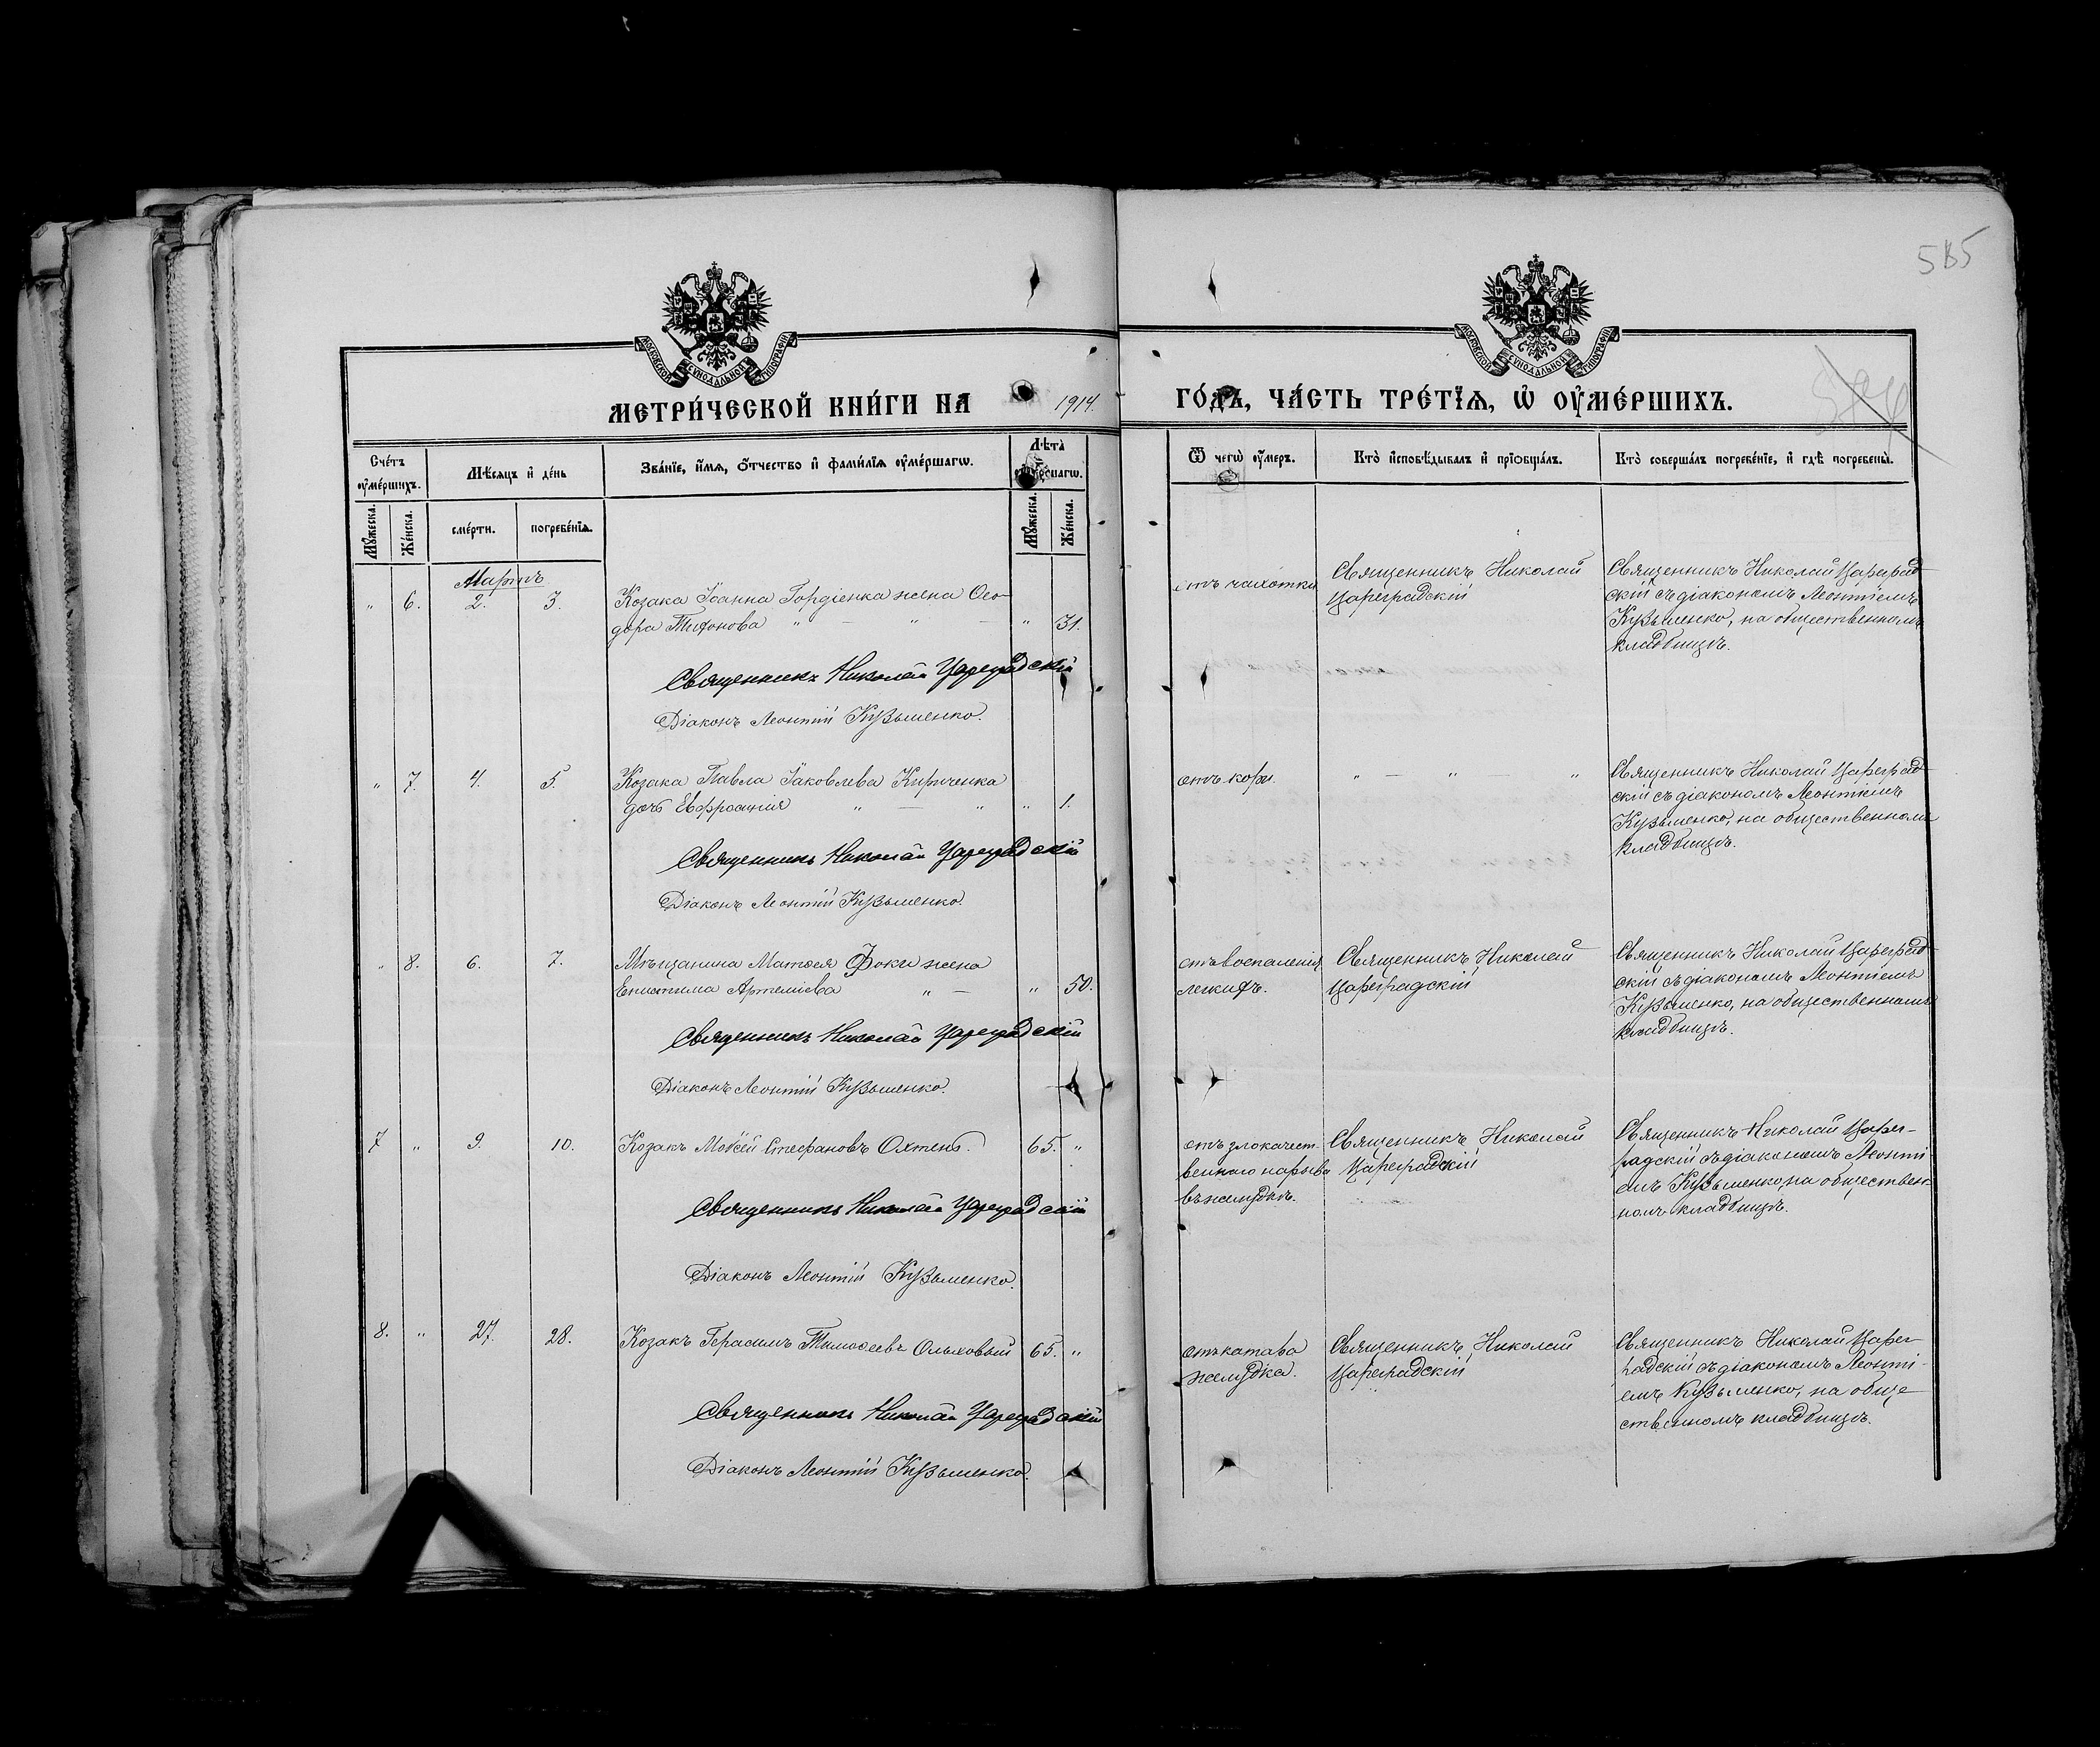 585
МОСКОВСКОЙ СУНОДАЛЬНОЙ ТИПОГРАФІИ
МОСКОВСКОЙ СУНОДАЛЬНОЙ ТИПОГРАФІИ
МЕТРИ́ЧЕСКОЙ КНИ́ГИ НА 1914. ГО́ДЪ, ЧА́СТЬ ТРЕ́ТІѦ, Ѡ҆ ОУ҆МЕ́РШИХЪ.
Сче́тъ оу҆ме́ршихъ.
Мѣ́сяцъ и҆ де́нь
Зва́нїе, и҆́мя, ѻ҆́тчество и҆ фами́лїя оу҆ме́ршагѡ.
Лѣ́та оу҆ме́ршагѡ.
Ѿ чегѡ̀ оу҆́меръ.
Кто̀ и҆сповѣ́дывалъ и҆ прїѡбща́лъ.
Кто̀ соверша́лъ погребе́нїе, и҆ гдѣ̀ погребены̀.
Мꙋ́жеска.
Же́нска.
сме́рти.
погребе́нїя.
Мꙋ́жеска.
Же́нска.
Мартъ
" 6. 2. 3. Козака Іоанна Гордіенка жена Ѳео-
дора Тихонова " — " — " 31.
Священникъ Николай Цареградскій
Діаконъ Леонтій Кузьменко.
отъ чахотки
Священникъ Николай
Цареградскій
Священникъ Николай Цареград-
скій съ діакономъ Леонтіемъ
Кузьменко, на общественномъ
кладбищѣ.
" 7. 4. 5. Козака Павла Іаковлева Кириченка
дочь Евфросинія " — " " 1.
Священникъ Николай Цареградскій
Діаконъ Леонтій Кузьменко.
отъ кори.
" — " "
Священникъ Николай Цареград-
скій съ діакономъ Леонтіемъ
Кузьменко, на общественномъ
кладбищѣ.
" 8. 6. 7. Мѣщанина Матѳея Фоки жена
Епистима Артеміева " — " 50.
Священникъ Николай Цареградскій
Діаконъ Леонтій Кузьменко.
отъ воспаленія
легкихъ.
Священникъ Николай
Цареградскій
Священникъ Николай Цареград-
скій съ діакономъ Леонтіемъ
Кузьменко, на общественномъ
кладбищѣ.
7 " 9. 10. Козакъ Моѵсей Стефановъ Охтень. 65. "
Священникъ Николай Цареградскій
Діаконъ Леонтій Кузьменко.
отъ злокачест-
веннаго нарыва
въ желудкѣ.
Священникъ Николай
Цареградскій
Священникъ Николай Царег-
радскій съ діакономъ Леонті
емъ Кузьменко, на обществен-
номъ кладбищѣ.
8. " 27. 28. Козакъ Герасимъ Тимоѳеевъ Ольховый 65. "
Священникъ Николай Цареградскій
Діаконъ Леонтій Кузьменко.
отъ катара
желудка.
Священникъ Николай
Цареградскій
Священникъ Николай Царег-
радскій съ діакономъ Леонті-
емъ Кузьменко, на обще
ственномъ кладбищѣ.